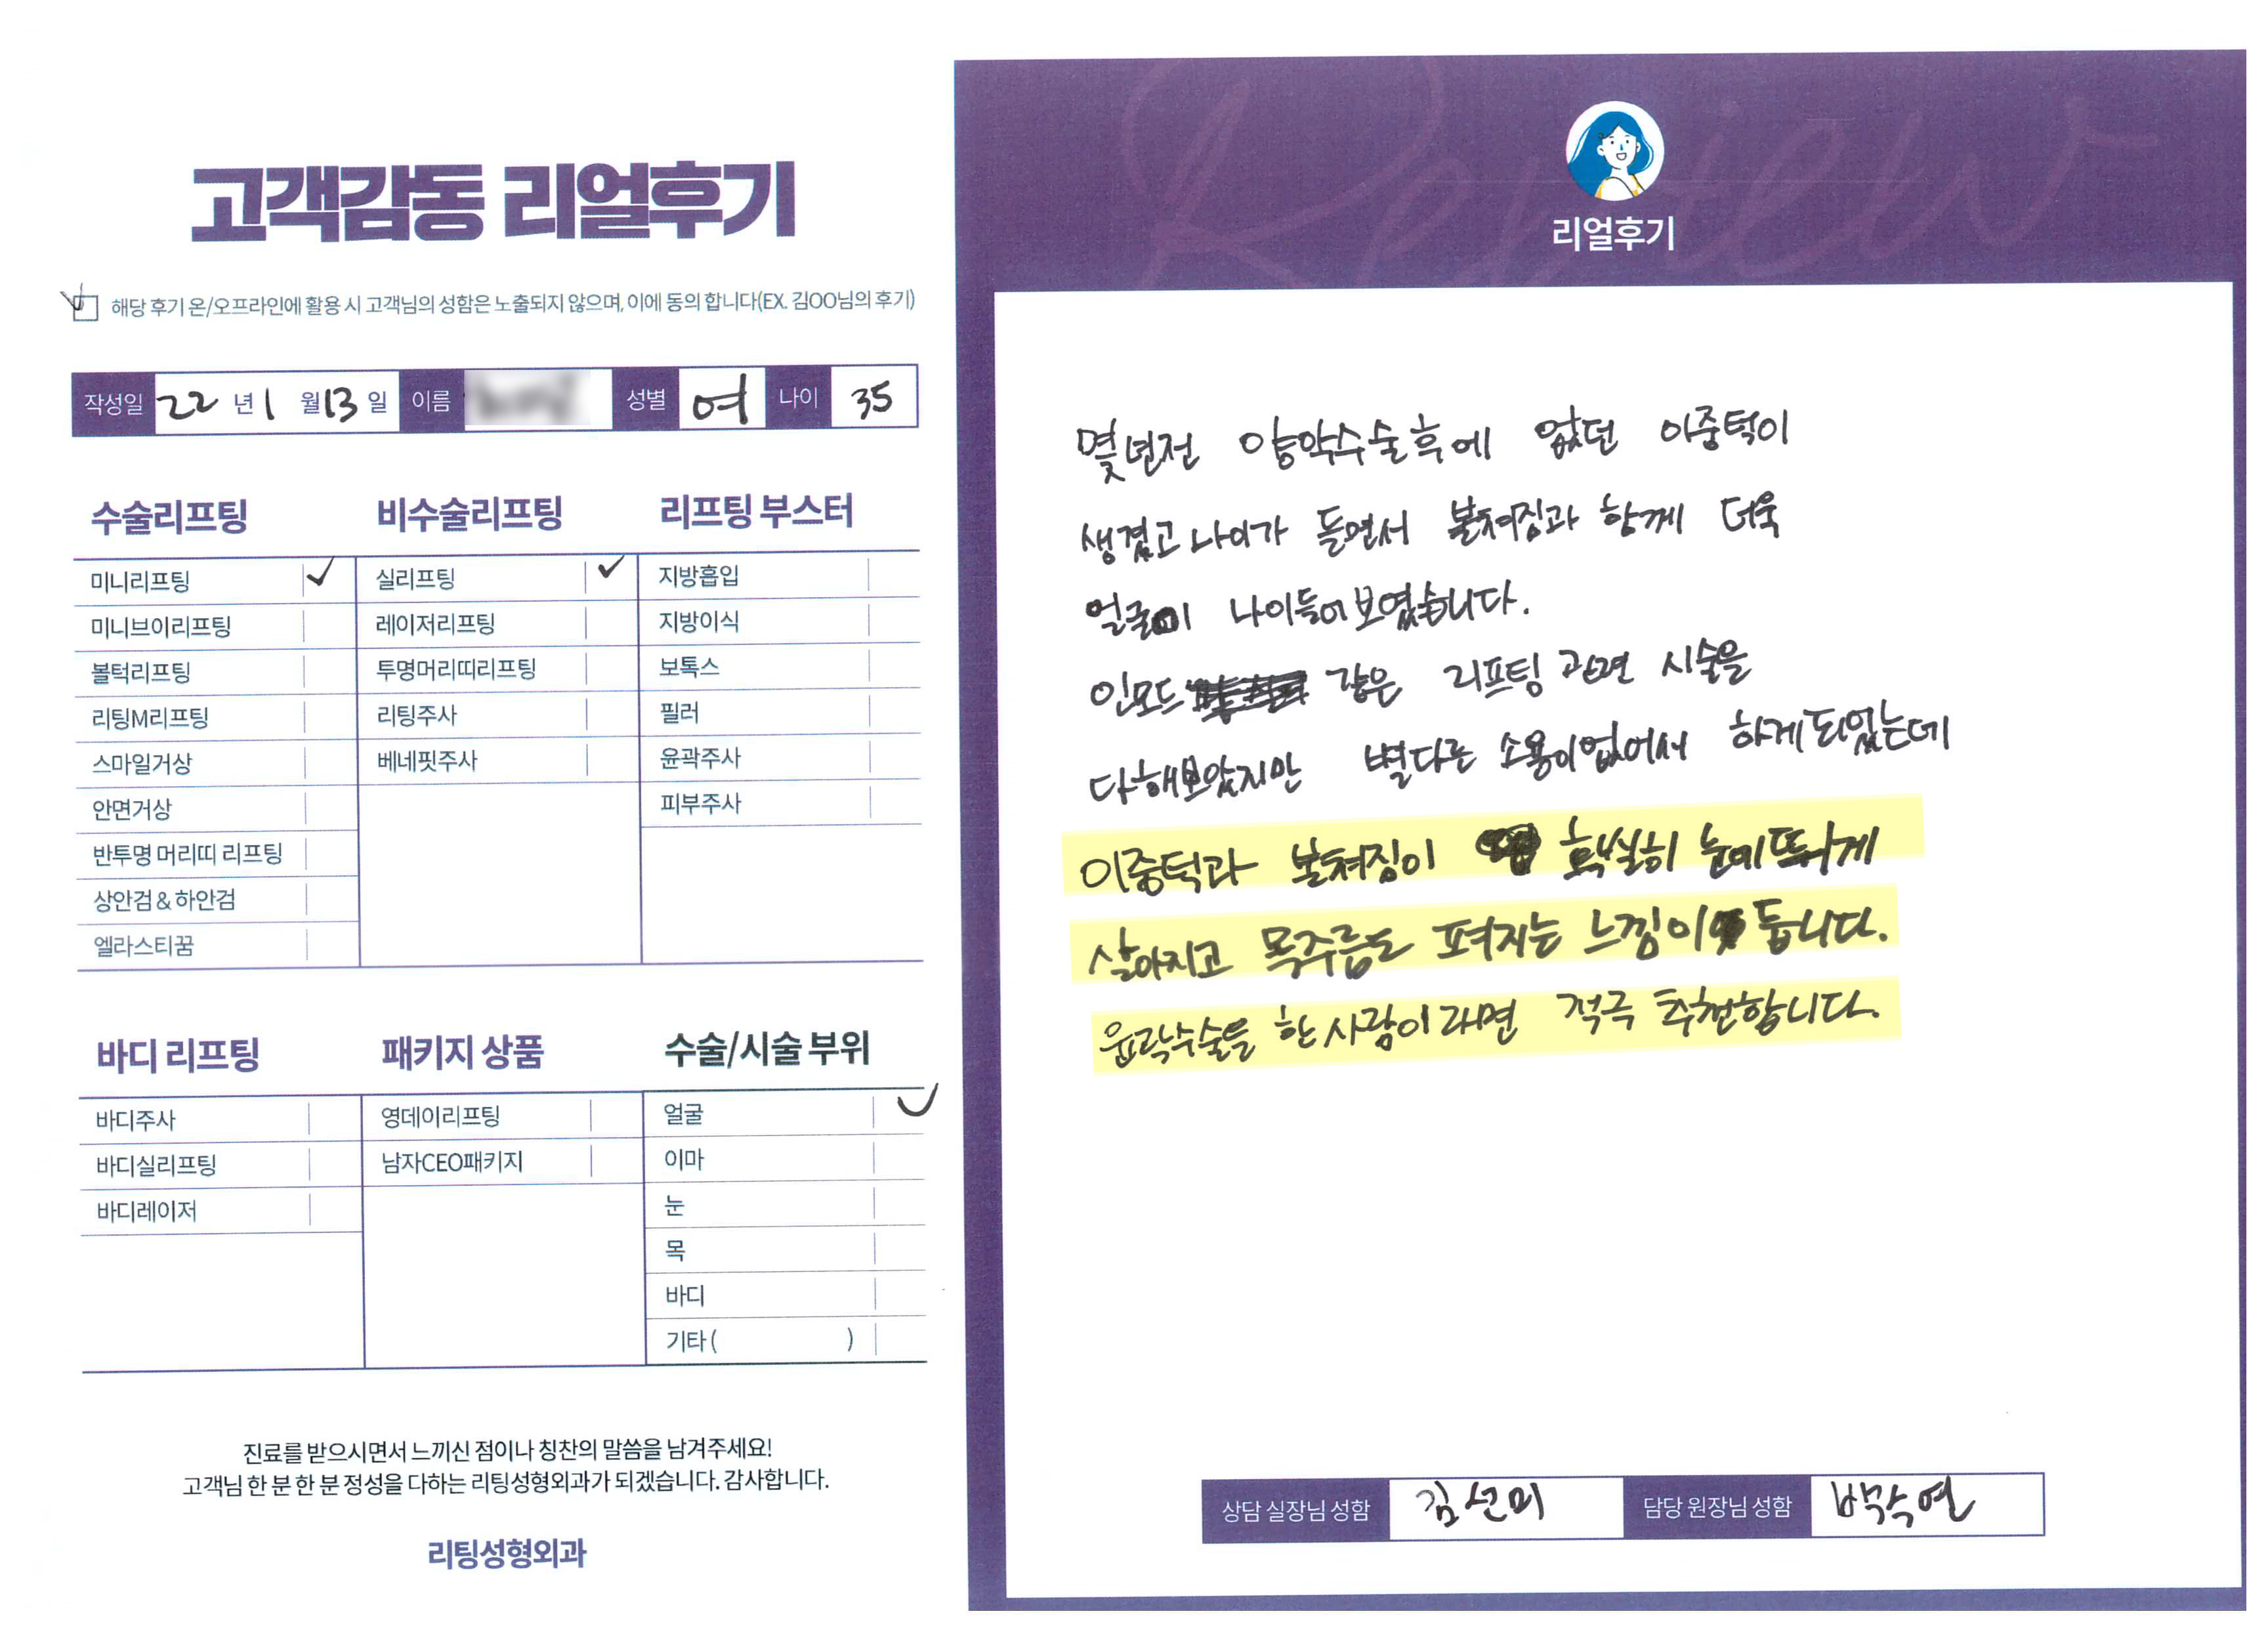 고객감동 리얼후기
해당 후기 온/오프라인에 활용 시 고객님의 성함은 노출되지 않으며, 이에 동의 합니다(EX. 김OO님의 후기)
작성일 22 년 1 월 13 일 이름 성별 여 나이 35
수술리프팅
미니리프팅 ✓
미니브이리프팅
볼턱리프팅
리팅M리프팅
스마일거상
안면거상
반투명 머리띠 리프팅
상안검 & 하안검
엘라스티꿈
비수술리프팅
실리프팅 ✓
레이저리프팅
투명머리띠리프팅
리팅주사
베네핏주사
리프팅 부스터
지방흡입
지방이식
보톡스
필러
윤곽주사
피부주사
바디 리프팅
바디주사
바디실리프팅
바디레이저
패키지 상품
영데이리프팅
남자CEO패키지
수술/시술 부위
얼굴 ✓
이마
눈
목
바디
기타 ( )
진료를 받으시면서 느끼신 점이나 칭찬의 말씀을 남겨주세요!
고객님 한 분 한 분 정성을 다하는 리팅성형외과가 되겠습니다. 감사합니다.
리팅성형외과
Review
리얼후기
몇년전 양악수술후에 없던 이중턱이
생겼고 나이가 들면서 볼쳐짐과 함께 더욱
얼굴이 나이들어보였습니다.
인모드 같은 리프팅 관련 시술을
다해보았지만 별다른 소용이없어서 하게되었는데
이중턱과 볼쳐짐이 확실히 눈에뜨게
살아지고 목주름도 펴지는 느낌이 듭니다.
윤곽수술을 한 사람이라면 적극 추천합니다.
상담 실장님 성함 김선미 담당 원장님 성함 박수연